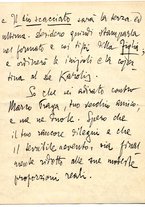 e Il discacciato sarà la terza ed
ultima. desidero quindi stamparla
nel formato e coi tipi della Figlia;
e ordinerò le iniziali e la coper
tina al De Karolis.
So che sei adirato contro
Marco Praga, tuo vecchio amico.
e me ne duole. Spero che
il tuo rancore dilegui e che
il terribile avvento sia final
mente ridotto alle sue modeste
proporzioni reali.